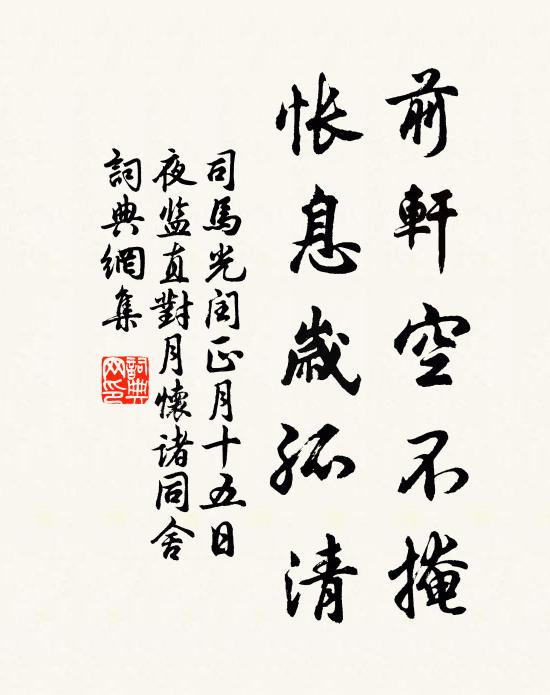 前軒空不掩
怅息歲孤清
司馬光闰正月十五日
夜监直對月懷诸同舍
詞典網集
詞典
网印